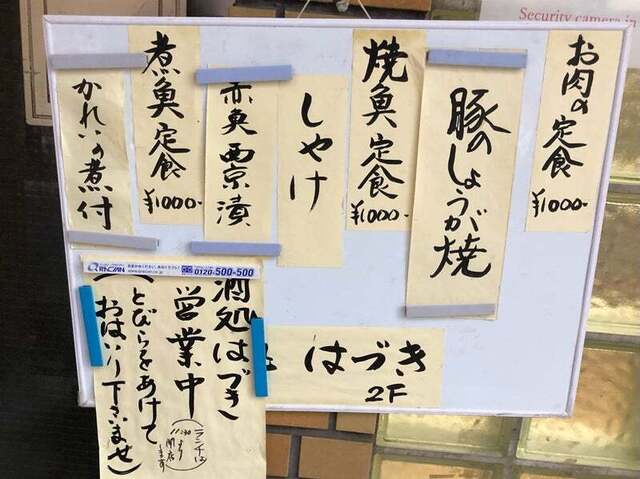 Security camera in
お肉の定食
¥1000-
豚のしょうが焼
焼魚定食
¥1000-
しゃけ
赤魚西京漬
煮魚定食
¥1000-
かれいの煮付
はづき
2F
0120-500-500
酒処はづき
営業中
(ランチは
11:30より
開店
します)
(とびらをあけて
おはいり下さいませ)